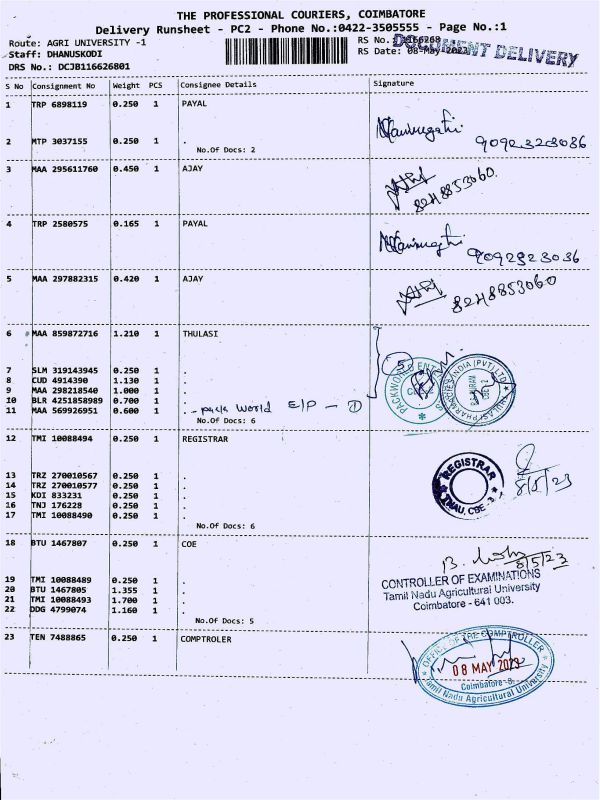 THE PROFESSIONAL COURIERS, COIMBATORE
Delivery Runsheet - PC2 - Phone No.:0422-3505555 - Page No.:1
Route: AGRI UNIVERSITY -1
RS No.:
Staff: DHANUSKODI
RS Date: 08-May-2023
DOCUMENT DELIVERY
DRS No.: DCJB116626801
S No Consignment No Weight PCS Consignee Details Signature
1 TRP 6898119 0.250 1 PAYAL
2 MTP 3037155 0.250 1 .
No.Of Docs: 2
9092323036
3 MAA 295611760 0.450 1 AJAY
8248853060
4 TRP 2580575 0.165 1 PAYAL
9092323036
5 MAA 297882315 0.420 1 AJAY
8248853060
6 MAA 859872716 1.210 1 THULASI
7 SLM 319143945 0.250 1 .
8 CUD 4914390 1.130 1 .
9 MAA 298218540 1.000 1 .
10 BLR 4251858989 0.700 1 .
11 MAA 569926951 0.600 1 . - pack World E/P - 1
No.Of Docs: 6
5
12 TMI 10088494 0.250 1 REGISTRAR
REGISTRAR
TNAU, CBE -3
8/5/23
13 TRZ 270010567 0.250 1 .
14 TRZ 270010577 0.250 1 .
15 KDI 833231 0.250 1 .
16 TNJ 176228 0.250 1 .
17 TMI 10088490 0.250 1 .
No.Of Docs: 6
18 BTU 1467807 0.250 1 COE
8/5/23
19 TMI 10088489 0.250 1 .
20 BTU 1467805 1.355 1 .
21 TMI 10088493 1.700 1 .
22 DDG 4799074 1.160 1 .
No.Of Docs: 5
CONTROLLER OF EXAMINATIONS
Tamil Nadu Agricultural University
Coimbatore - 641 003.
23 TEN 7488865 0.250 1 COMPTROLER
OFFICE OF THE COMPTROLLER
08 MAY 2023
Coimbatore -3.
Tamil Nadu Agricultural University